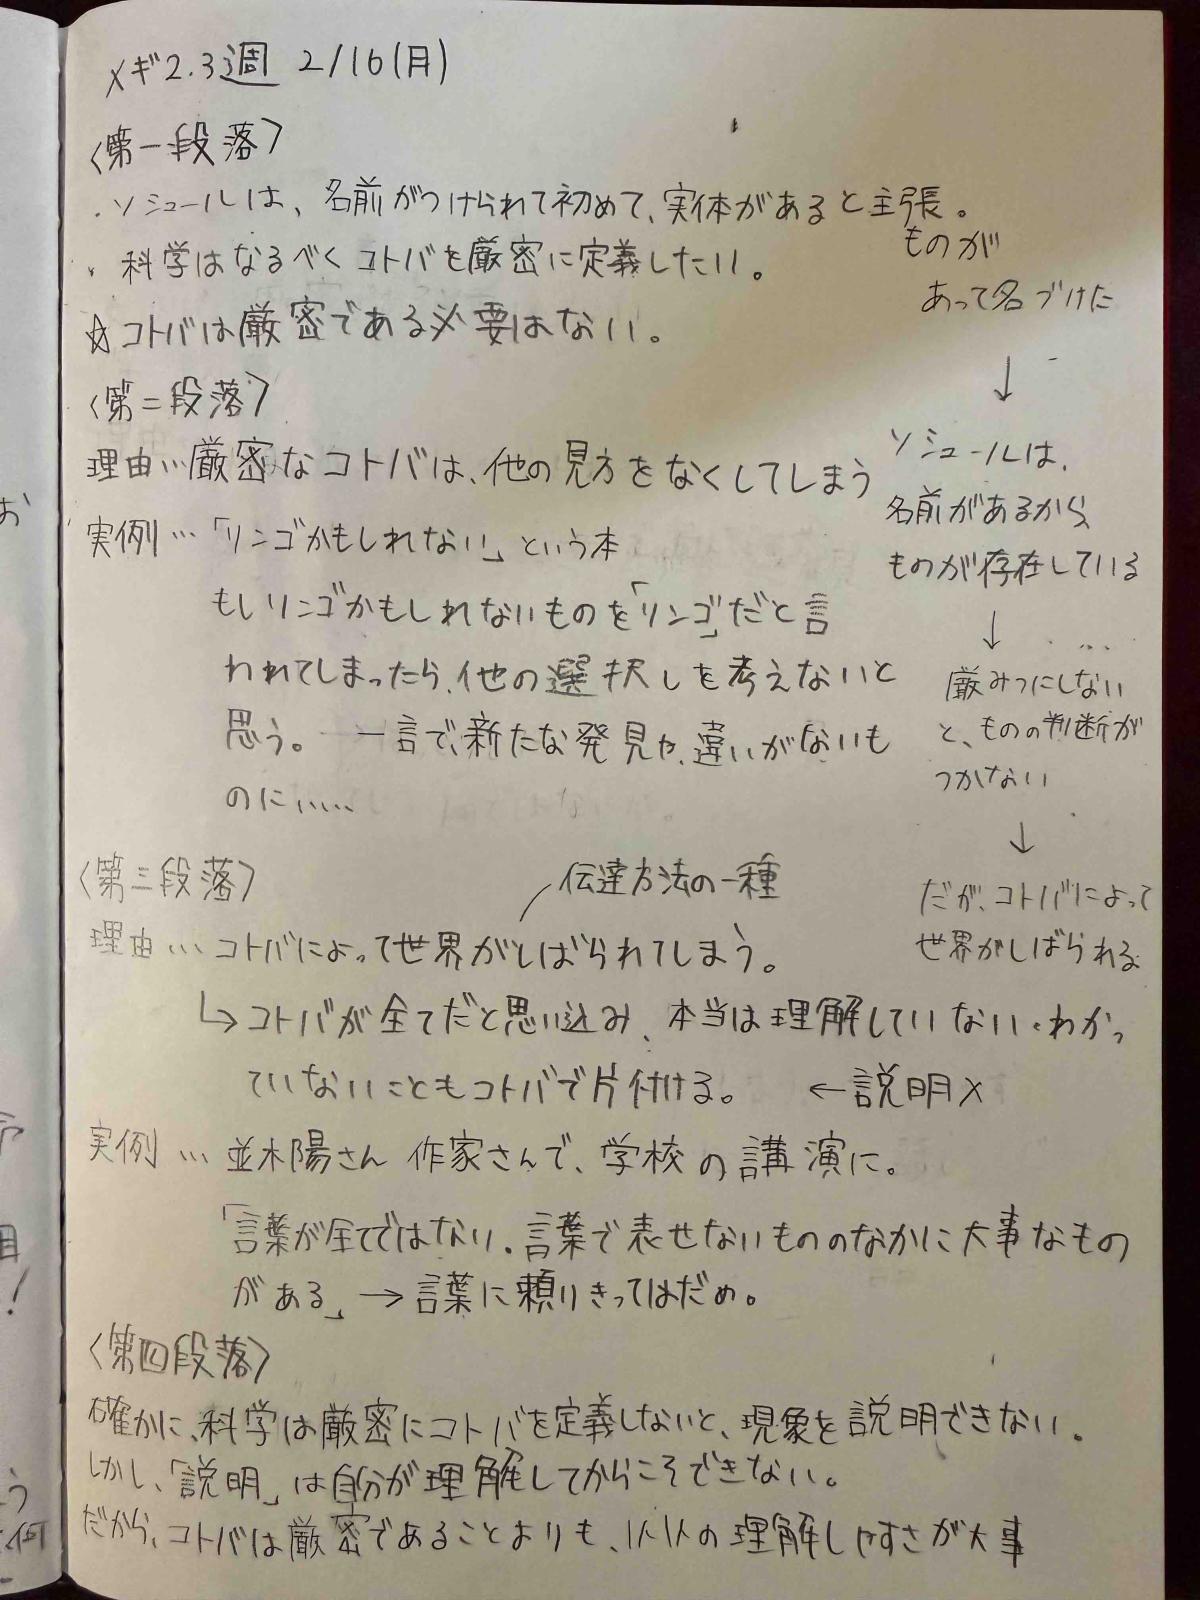 メギ2.3週 2/16(月)
〈第一段落〉
・ソシュールは、名前がつけられて初めて、実体があると主張。
・科学はなるべくコトバを厳密に定義したい。
☆コトバは厳密である必要はない。
〈第二段落〉
理由…厳密なコトバは、他の見方をなくしてしまう
実例…「リンゴかもしれない」という本
もしリンゴかもしれないものを「リンゴ」だと言
われてしまったら、他の選択しを考えないと
思う。 一言で、新たな発見や、違いがないも
のに……
〈第三段落〉
伝達方法の一種
理由…コトバによって世界がしばられてしまう。
↳コトバが全てだと思い込み、本当は理解していない・わかっ
ていないこともコトバで片付ける。 ←説明×
実例…並木陽さん 作家さんで、学校の講演に。
「言葉が全てではない。言葉で表せないもののなかに大事なもの
がある」→言葉に頼りきってはだめ。
〈第四段落〉
確かに、科学は厳密にコトバを定義しないと、現象を説明できない。
しかし、「説明」は自分が理解してからこそできない。
だから、コトバは厳密であることよりも、人人の理解しやすさが大事
ものが
あって名づけた
↓
ソシュールは、
名前があるから、
ものが存在している
↓ …
厳みつにしない
と、ものの判断が
つかない
↓
だが、コトバによって
世界がしばられる
お
う
何